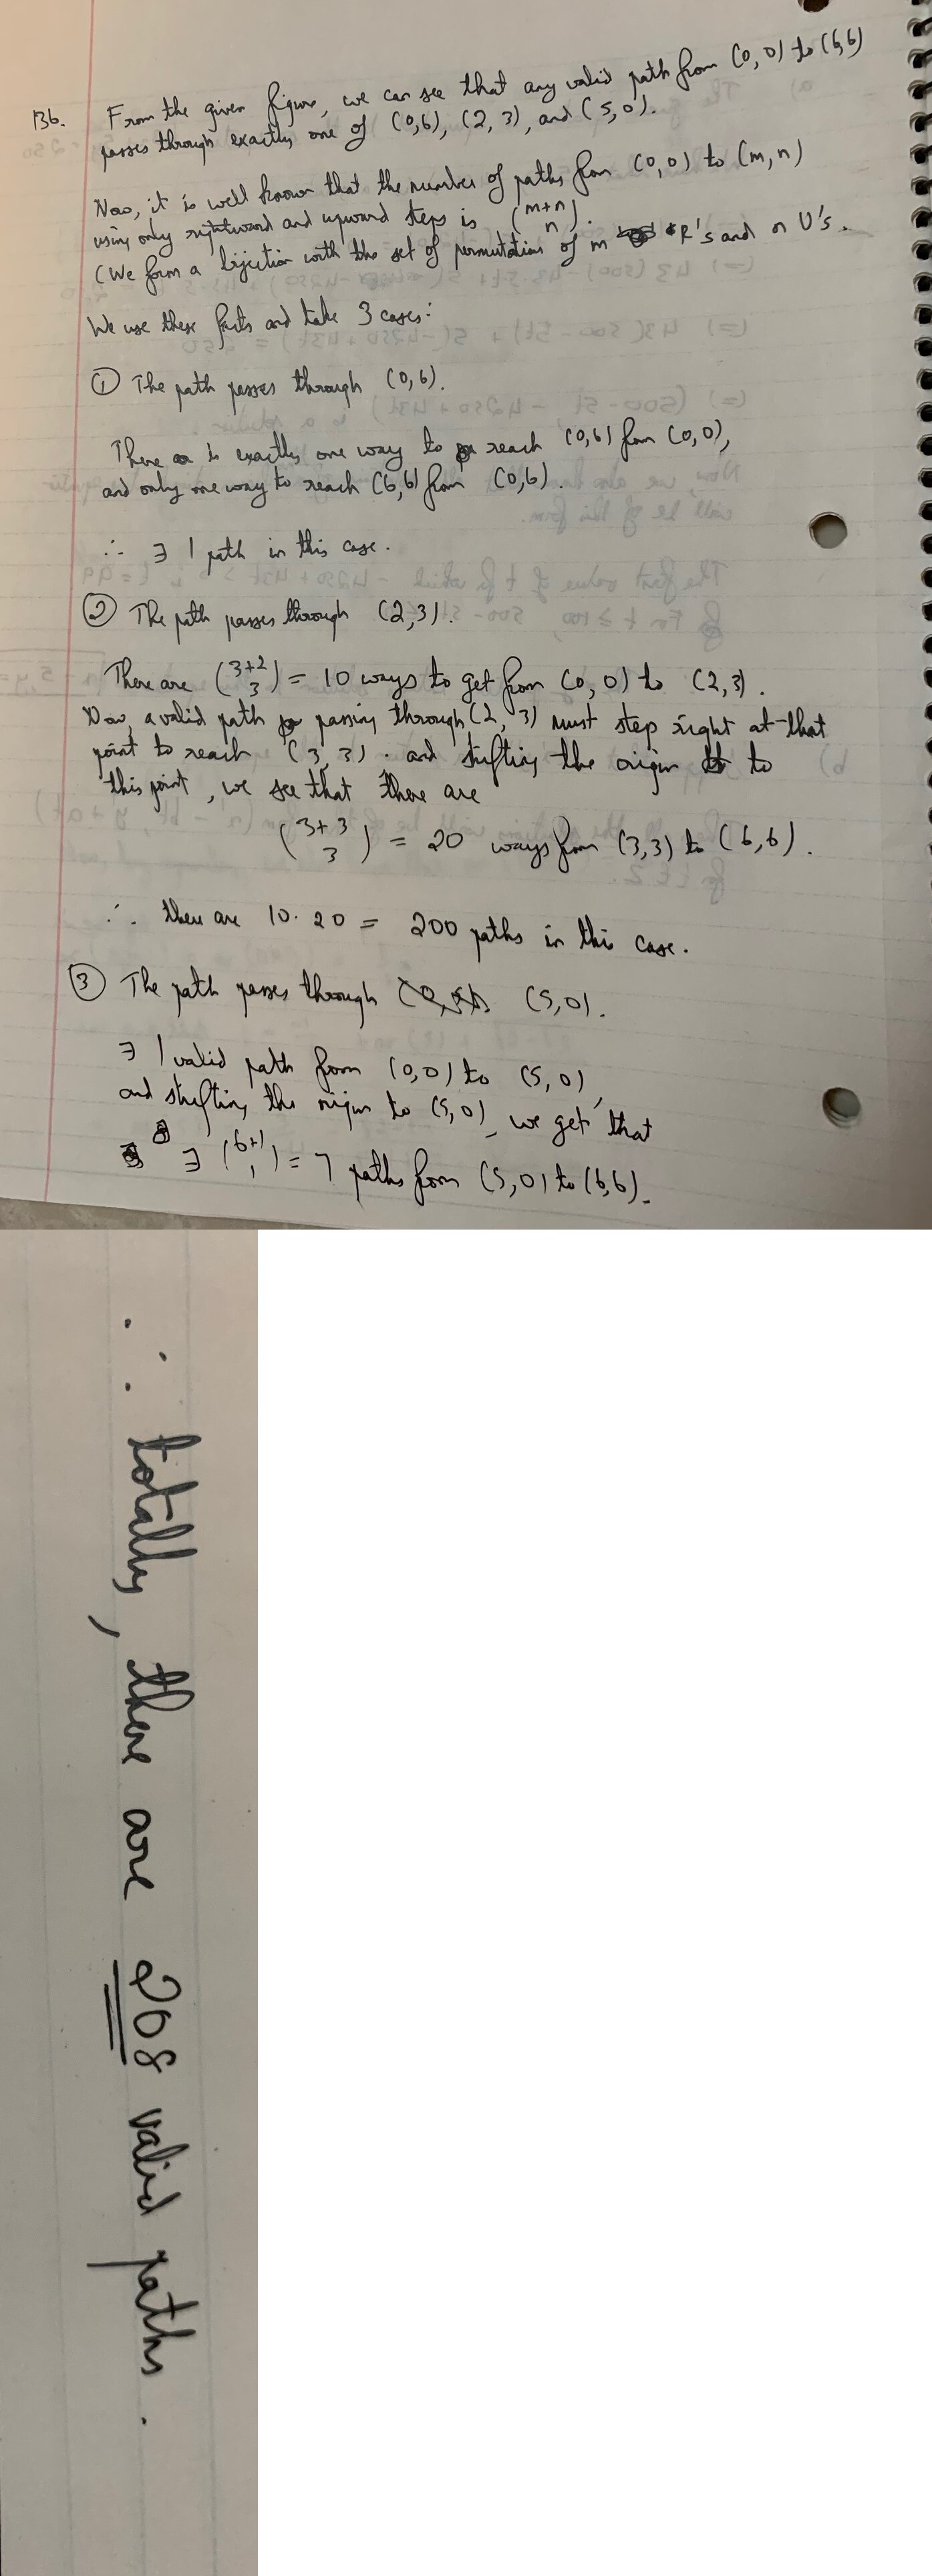 136. From the given figure, we can see that any valid path from (0,0) to (6,6)
passes through exactly one of (0,6), (2,3), and (5,0).
Now, it is well known that the number of paths from (0,0) to (m,n)
using only rightward and upward steps is (m+n n).
(We form a bijection with the set of permutations of m R's and n U's.
We use these facts and take 3 cases:
① The path passes through (0,6).
There is exactly one way to reach (0,6) from (0,0),
and only one way to reach (6,6) from (0,6).
∴ ∃ 1 path in this case.
② The path passes through (2,3).
There are (3+2 3) = 10 ways to get from (0,0) to (2,3).
Now, a valid path passing through (2,3) must step right at that
point to reach (3,3). and shifting the origin to
this point, we see that there are
(3+3 3) = 20 ways from (3,3) to (6,6).
∴ there are 10.20 = 200 paths in this case.
③ The path passes through (5,0).
∃ 1 valid path from (0,0) to (5,0),
and shifting the origin to (5,0), we get that
∃ (6+1 1) = 7 paths from (5,0) to (6,6).
∴ totally, there are 208 valid paths.